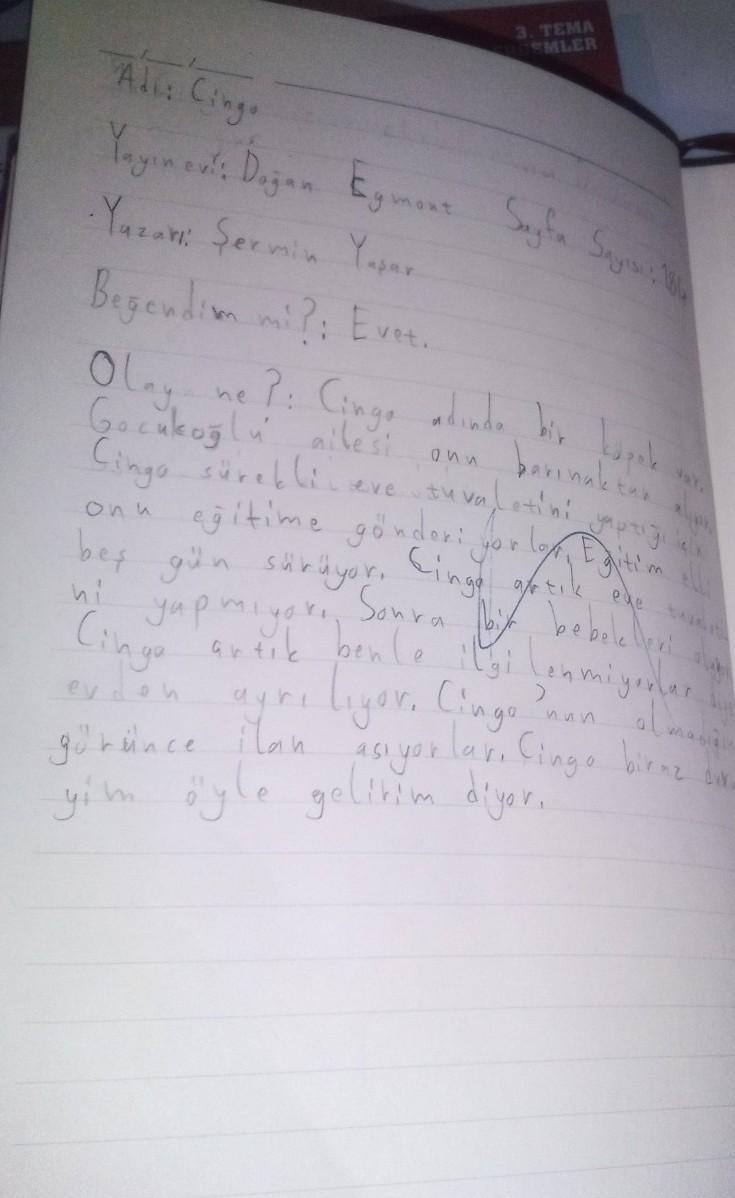 3. TEMA
Adı: Cingo
Yayın evi: Doğan Egmont Sayfa Sayısı:
Yazarı: Şermin Yaşar
Beğendim mi?: Evet.
Olay ne?: Cingo adında bir köpek var.
Gocukoğlu ailesi onu barınaktan alıyor.
Cingo sürekli eve tuvaletini yaptığı için
onu eğitime gönderiyorlar. Eğitim elli
beş gün sürüyor. Cingo artık eve
ni yapmıyor. Sonra bir bebekleri
Cingo artık benle ilgilenmiyorlar
evden ayrılıyor. Cingo'nun
görünce ilan asıyorlar. Cingo biraz
yim öyle gelirim diyor.